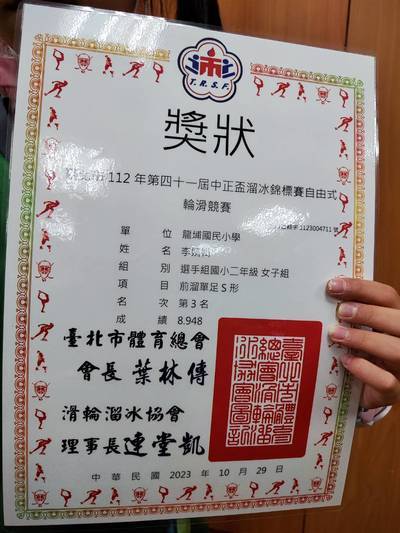 T.R.S.F.
獎狀
112年第四十一屆中正盃溜冰錦標賽自由式
輪滑競賽
1123004711 號
單位 龍埔國民小學
姓名 李
組別 選手組國小二年級 女子組
項目 前溜單足S形
名次 第3名
成績 8.948
臺北市體育總會
會長 葉林傳
滑輪溜冰協會
理事長 連堂凱
中華民國 2023 年 10 月 29 日